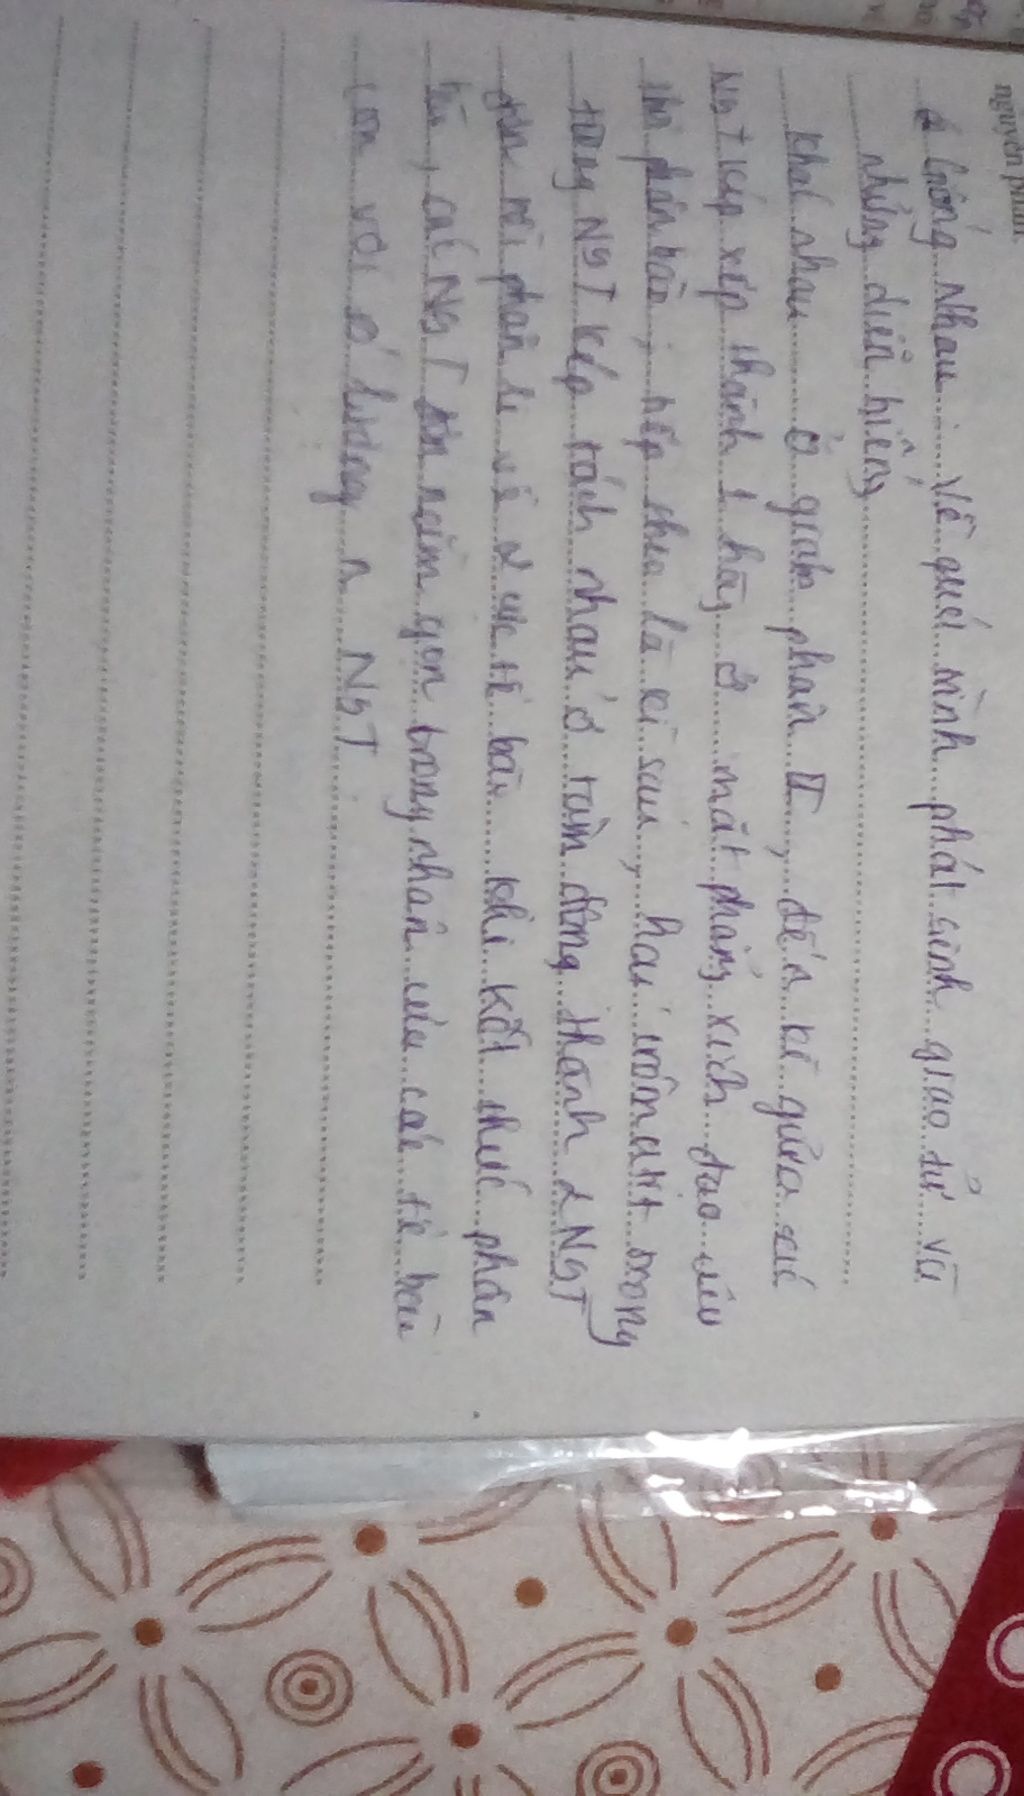 nguyên phân
Giống nhau : về quá trình phát sinh giao tử và
những diễn biến
khác nhau ở giảm phân II, đến kì giữa các
NST kép xếp thành 1 hàng ở mặt phẳng xích đạo của
thoi phân bào ; tiếp theo là kì sau, hai crômatit trong
từng NST kép tách nhau ở tâm động thành 2 NST
đơn rồi phân li về 2 cực tế bào khi kết thúc phân
bào, các NST đơn nằm gọn trong nhân của các tế bào
con với số lượng n NST